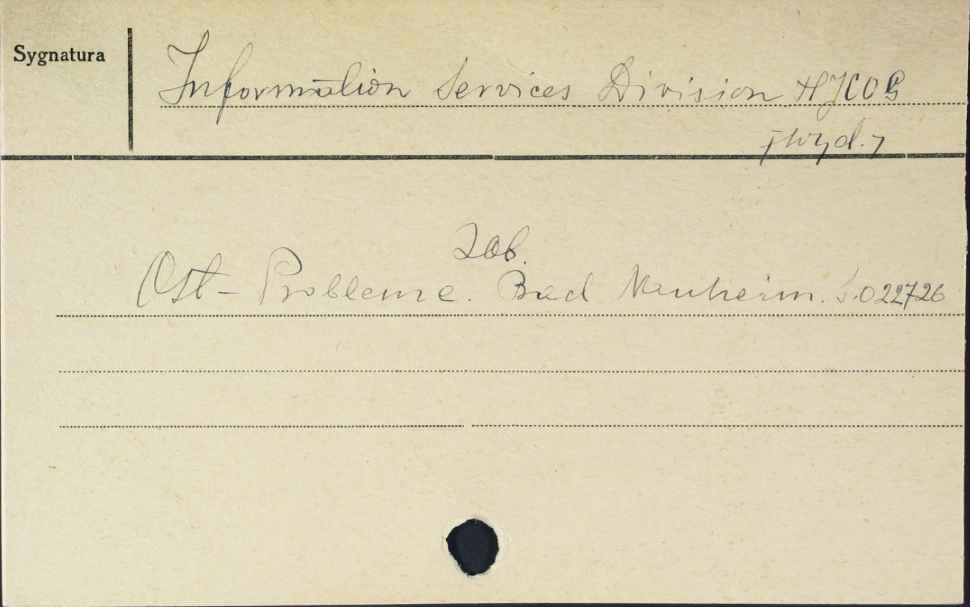 Sygnatura
Information Services Division HICOG
[wyd.]
Zob.
Ost-Probleme. Bad Nauheim. S.022726